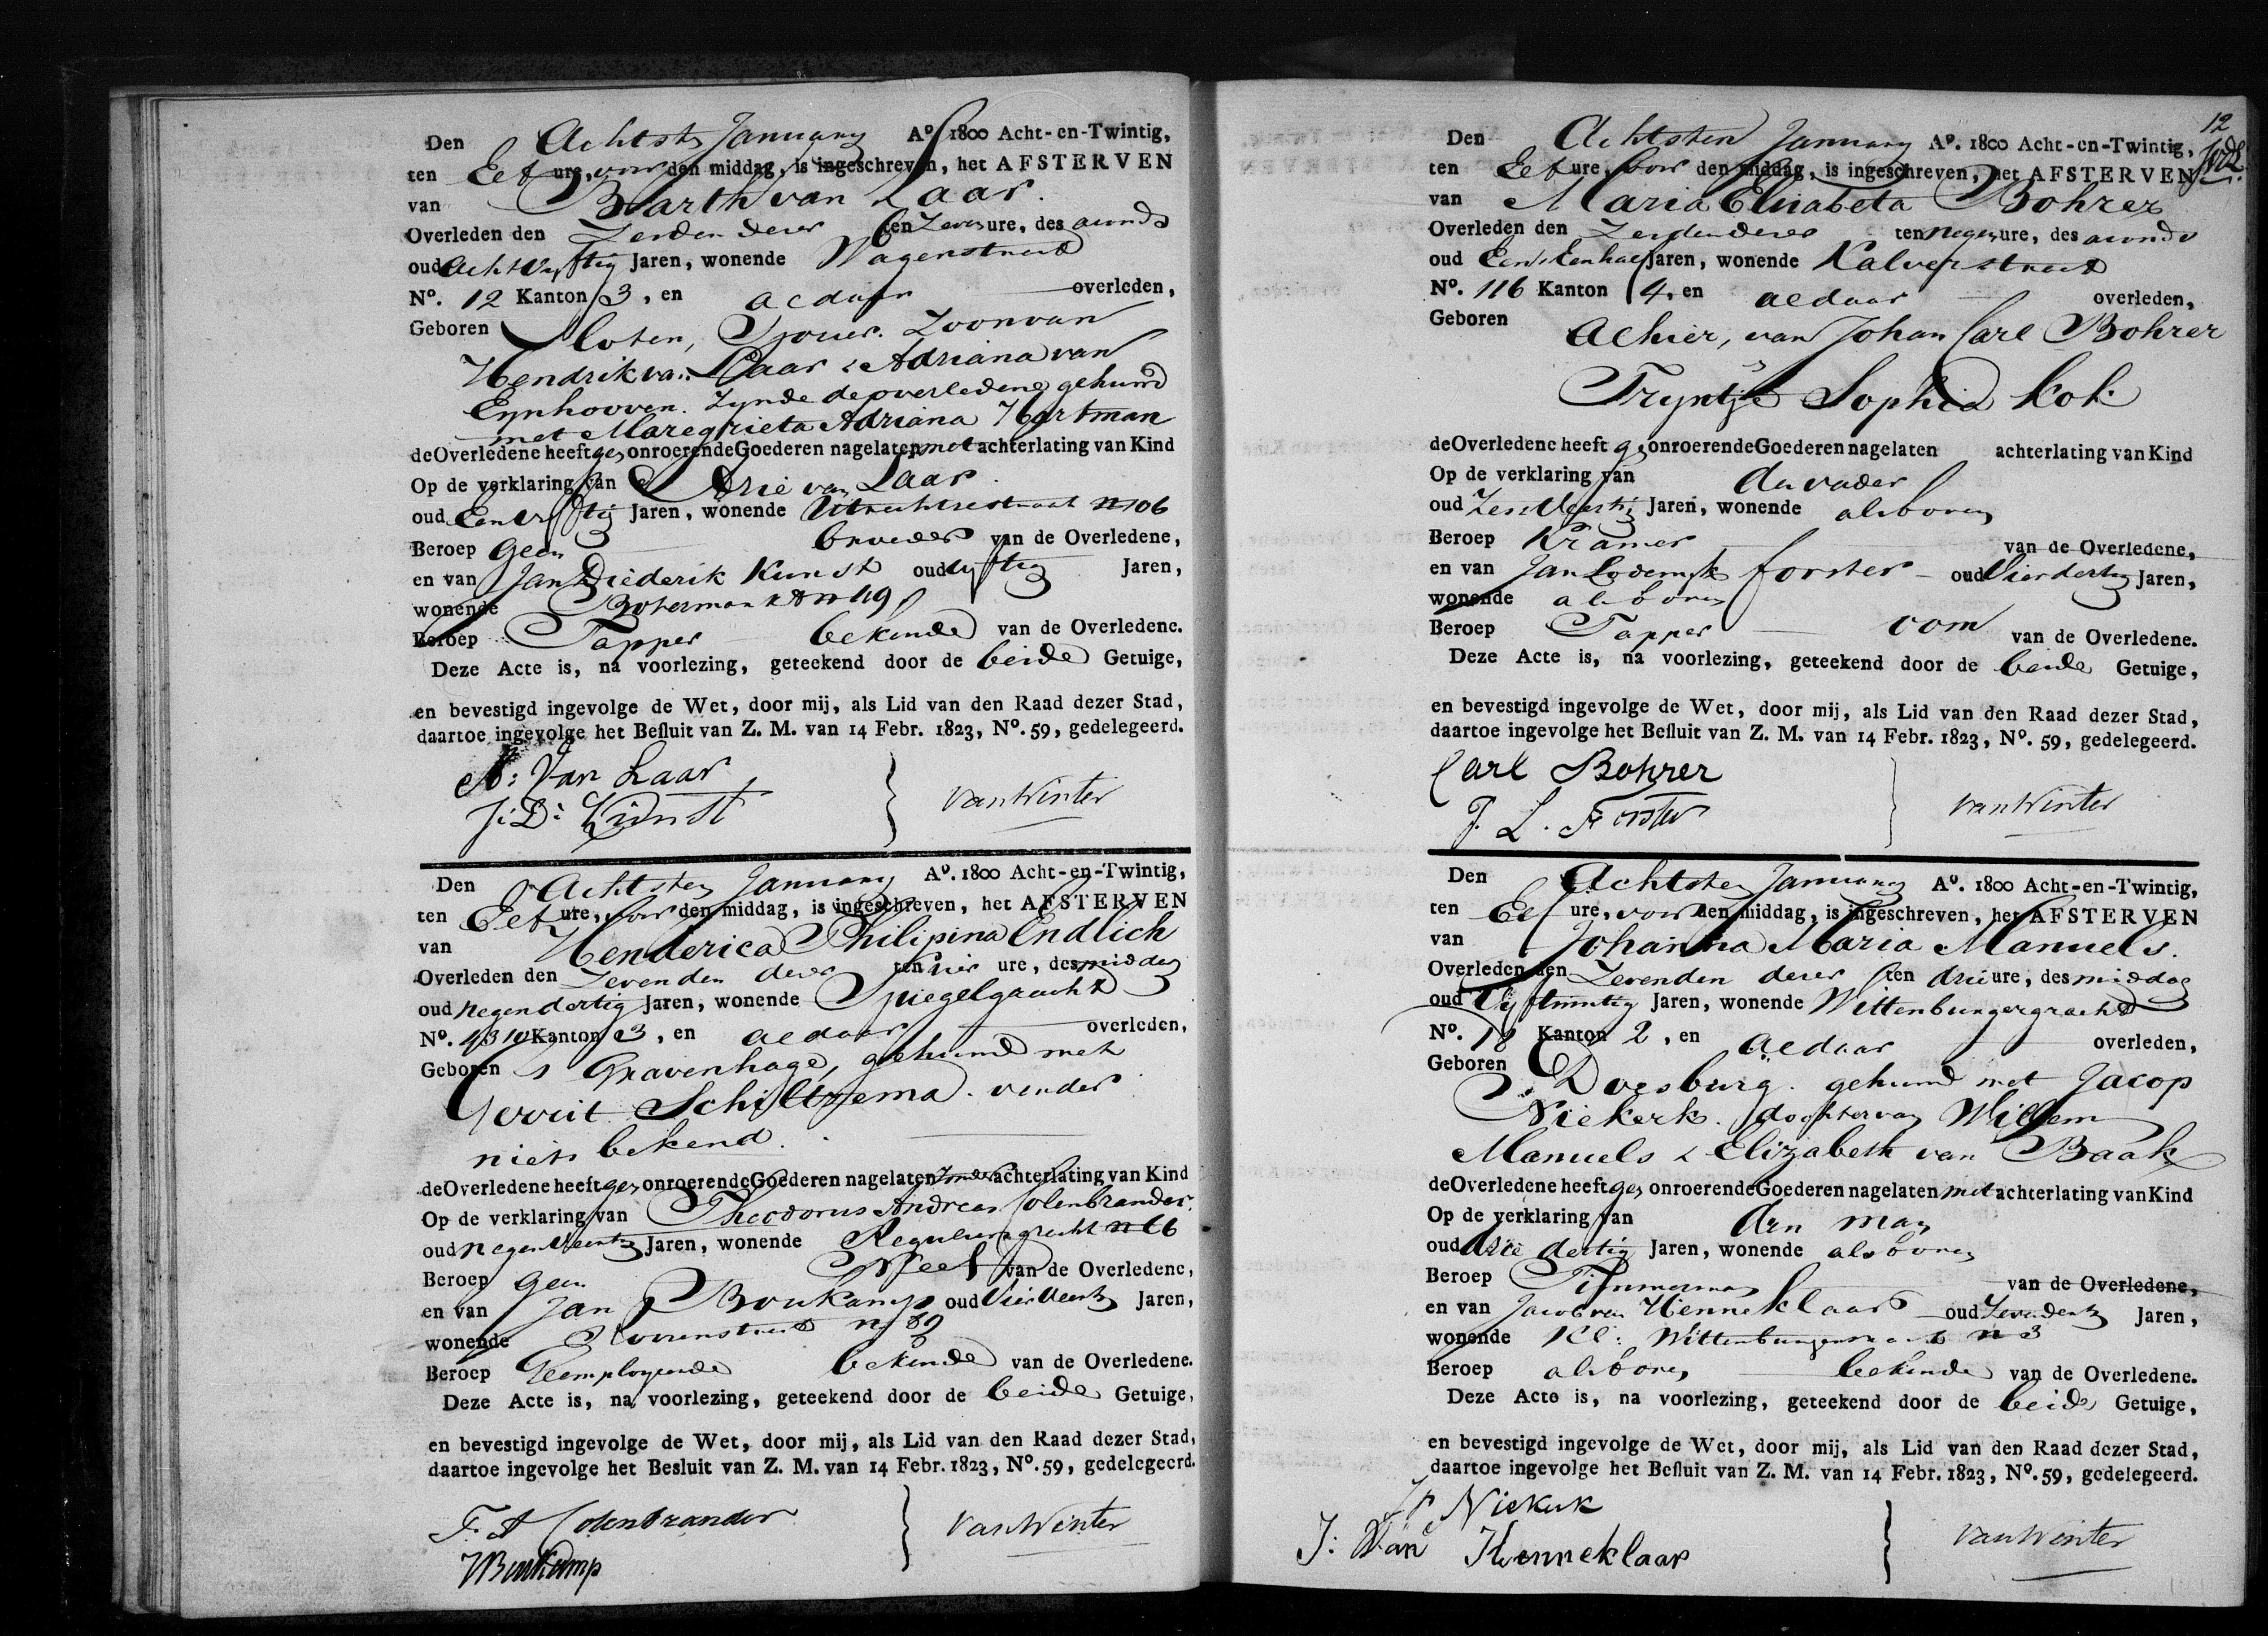 Den Achtste January Aº. 1800 Acht-en-Twintig,
ten Elf ure, voor den middag, is ingeschreven, het AFSTERVEN
van Barth van Laar.
Overleden den Zesden dezer ten Zeven ure, des avonds
oud Acht Vyftig Jaren, wonende Wagenstraat
Nº. 12 Kanton 3, en aldaar overleden,
Geboren Sloten, Zoon van
Hendrik van Laar & Adriana van
Eynhooven. Zynde de overledene gehuwd
met Maregrieta Adriana Hartman
de Overledene heeft gen onroerende Goederen nagelaten met achterlating van Kind
Op de verklaring van Arie van Laar
oud Een Vyftig Jaren, wonende Utrechtsestraat n 106
Beroep Geen broeder van de Overledene,
en van Jan Diederik Kunst oud vyftig Jaren,
wonende Botermarkt n 119
Beroep Tapper bekende van de Overledene.
Deze Acte is, na voorlezing, geteekend door de beide Getuige,
en bevestigd ingevolge de Wet, door mij, als Lid van den Raad dezer Stad,
daartoe ingevolge het Besluit van Z. M. van 14 Febr. 1823, Nº. 59, gedelegeerd.
A: Van Laar
J: D: Kunst
van Winter
Den Achtsten January Aº. 1800 Acht-en-Twintig,
ten Elf ure, voor den middag, is ingeschreven, het AFSTERVEN
van Henderica Philipina Endlich
Overleden den Zevenden dezer ten vier ure, des middag
oud negen dertig Jaren, wonende Spiegelgracht
Nº. Kanton 3, en aldaar overleden,
Geboren s Gravenhage, gehuwd met
Gerrit Schiltzema. verder
niets bekend.
de Overledene heeft gen onroerende Goederen nagelaten zonder achterlating van Kind
Op de verklaring van Theodorus Andreas Colenbrander.
oud negen Veertig Jaren, wonende Reguliersgracht n 66
Beroep Geen Neef van de Overledene,
en van Jan Boukamp oud Vier Veertig Jaren,
wonende n 89
Beroep Geemployeerde bekende van de Overledene.
Deze Acte is, na voorlezing, geteekend door de beide Getuige,
en bevestigd ingevolge de Wet, door mij, als Lid van den Raad dezer Stad,
daartoe ingevolge het Besluit van Z. M. van 14 Febr. 1823, Nº. 59, gedelegeerd.
T. A Colenbrander
JBoukamp
van Winter
12
Den Achtsten January Aº. 1800 Acht-en-Twintig,
ten Elf ure, voor den middag, is ingeschreven, het AFSTERVEN
van Maria Elisabeta Bohrer
Overleden den Zesden dezer ten negen ure, des avonds
oud Een & Een half Jaren, wonende Kalverstraat
Nº. 116 Kanton 4, en aldaar overleden,
Geboren Alhier, van Johan Carl Bohrer
&
Tryntje Sophia Kok
de Overledene heeft gn onroerende Goederen nagelaten achterlating van Kind
Op de verklaring van den vader
oud Zes Veertig Jaren, wonende als boven
Beroep Kramer van de Overledene,
en van Jan Lodewyk Forster oud Vier dertig Jaren,
wonende als boven
Beroep Tapper oom van de Overledene.
Deze Acte is, na voorlezing, geteekend door de beide Getuige,
en bevestigd ingevolge de Wet, door mij, als Lid van den Raad dezer Stad,
daartoe ingevolge het Besluit van Z. M. van 14 Febr. 1823, Nº. 59, gedelegeerd.
Carl Bohrer
J. L. Forster
van Winter
Den Achtsten January Aº. 1800 Acht-en-Twintig,
ten Elf ure, voor den middag, is ingeschreven, het AFSTERVEN
van Johanna Maria Manuels.
Overleden den Zevenden dezer ten drie ure, des middag
oud Vyf Twintig Jaren, wonende Wittenburgergracht
Nº. 18 Kanton 2, en aldaar overleden,
Geboren Doesburg. gehuwd met Jacop
Niekerk. dochter van Willem
Manuels & Elizabeth van Baak
de Overledene heeft gen onroerende Goederen nagelaten met achterlating van Kind
Op de verklaring van den man
oud drie dertig Jaren, wonende als boven
Beroep Timmerman van de Overledene,
en van Jacob van Henneklaar oud Zeven dertig Jaren,
wonende Kl: Wittenburgerstraat n 3
Beroep als boven bekende van de Overledene.
Deze Acte is, na voorlezing, geteekend door de beide Getuige,
en bevestigd ingevolge de Wet, door mij, als Lid van den Raad dezer Stad,
daartoe ingevolge het Besluit van Z. M. van 14 Febr. 1823, Nº. 59, gedelegeerd.
Jp Niekerk
J: Van Henneklaar
van Winter